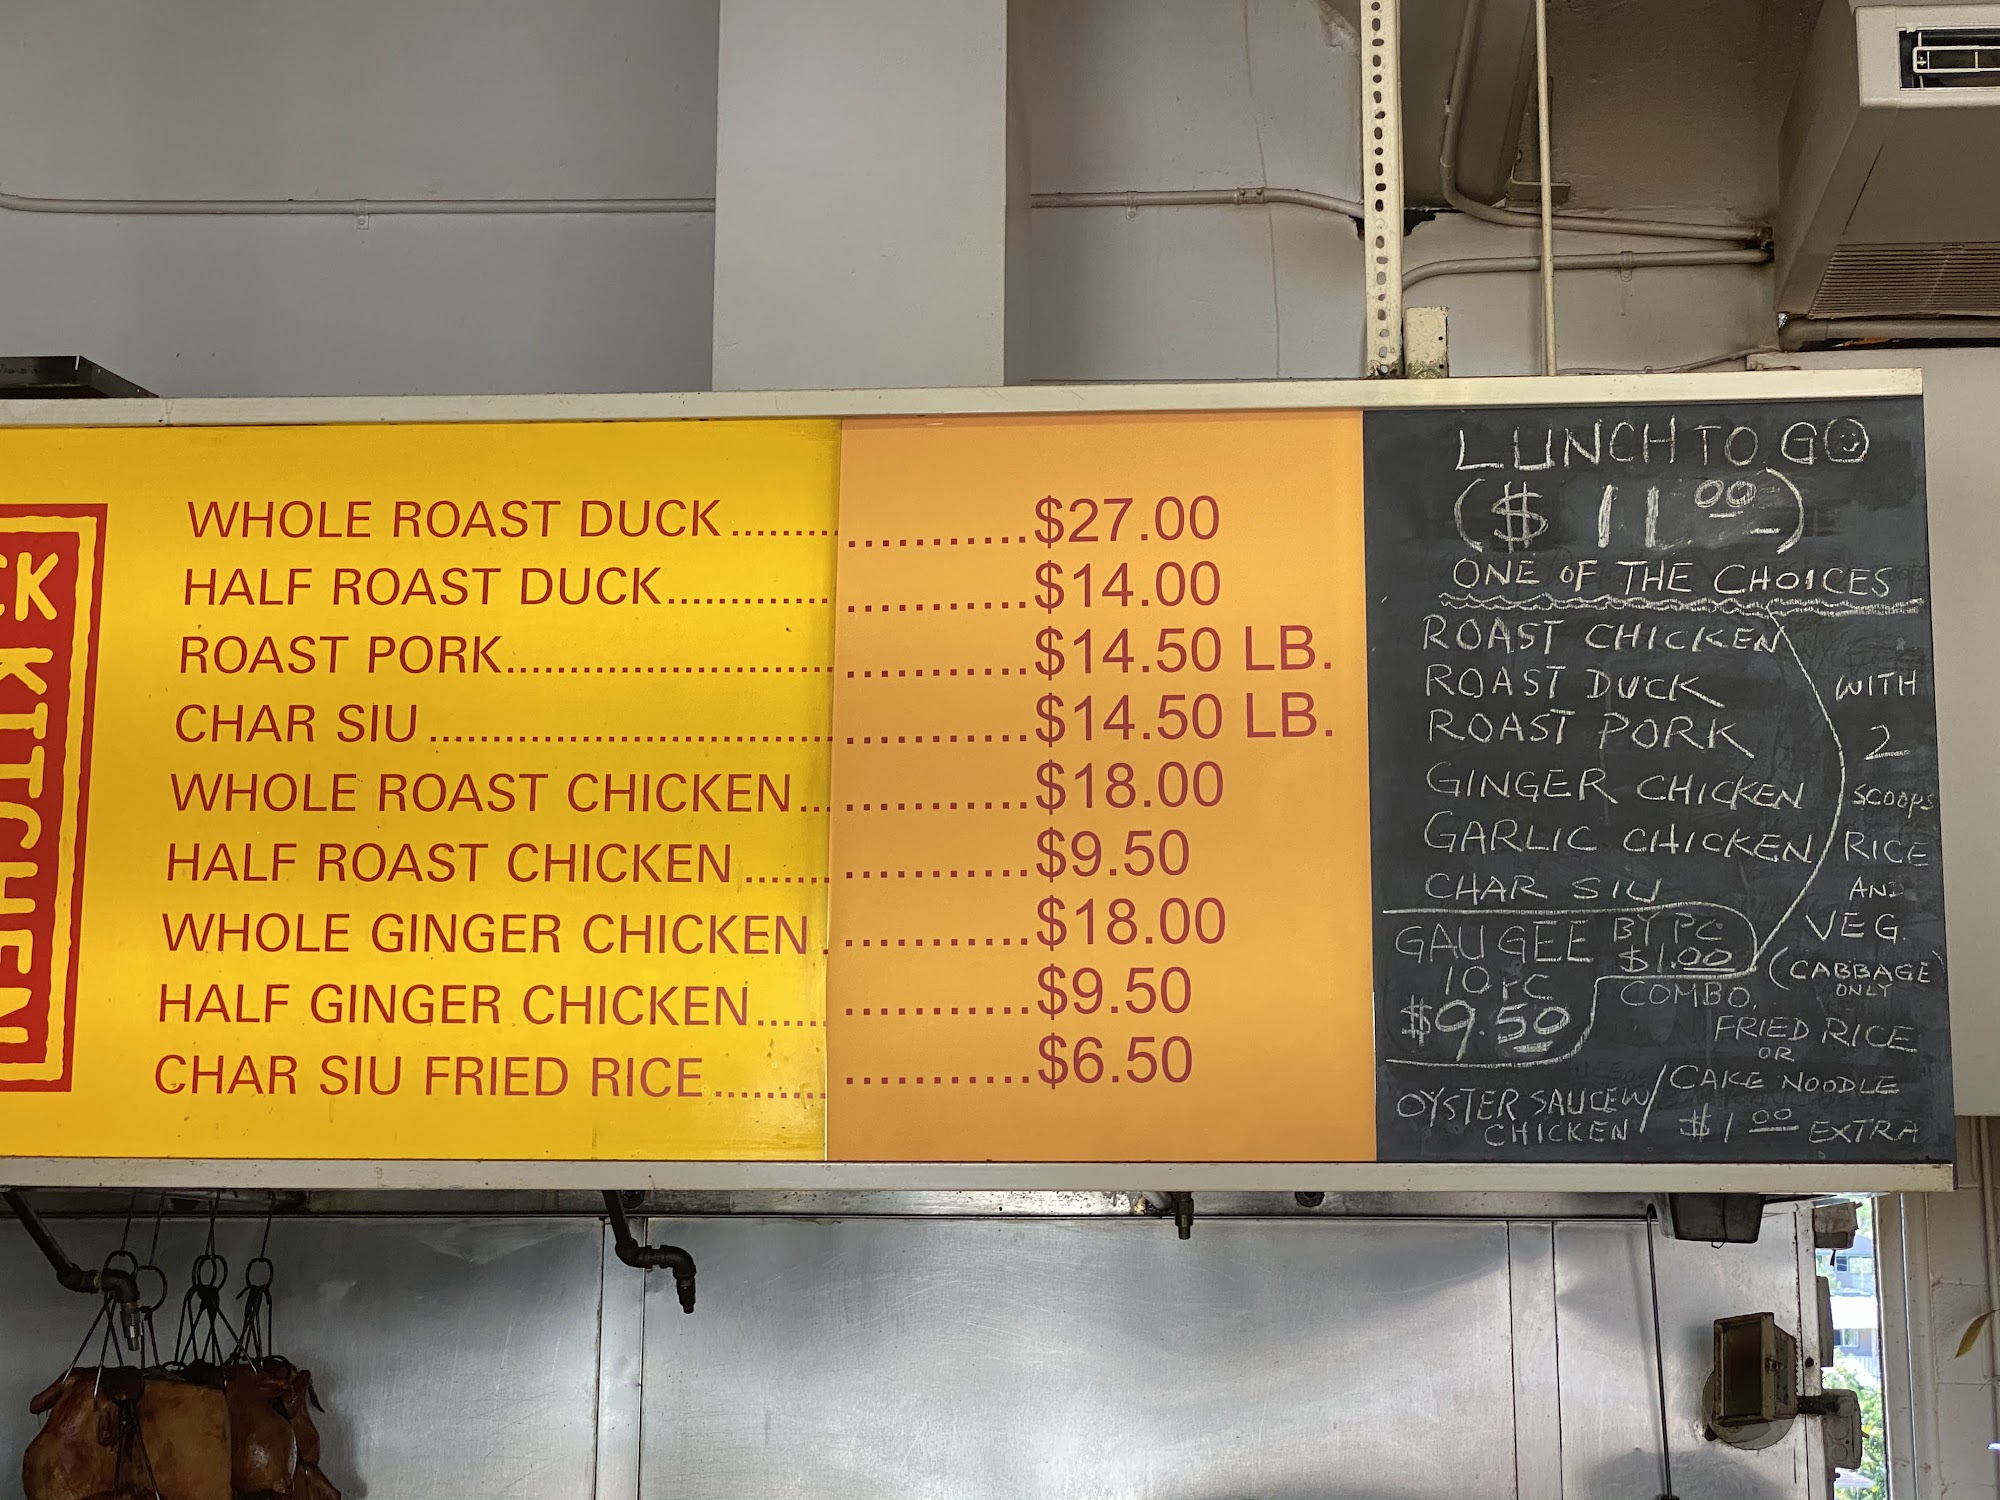 CK KITCHEN
WHOLE ROAST DUCK ..................$27.00
HALF ROAST DUCK.......................$14.00
ROAST PORK...................................$14.50 LB.
CHAR SIU.......................................$14.50 LB.
WHOLE ROAST CHICKEN..............$18.00
HALF ROAST CHICKEN .................$9.50
WHOLE GINGER CHICKEN............$18.00
HALF GINGER CHICKEN................$9.50
CHAR SIU FRIED RICE...................$6.50
LUNCH TO GO
($11.00)
ONE OF THE CHOICES
ROAST CHICKEN
ROAST DUCK
ROAST PORK
GINGER CHICKEN
GARLIC CHICKEN
CHAR SIU
WITH
2
SCOOPS
RICE
AND
VEG.
(CABBAGE
ONLY
GAU GEE BY PC
$1.00
10 PC
$9.50
COMBO,
FRIED RICE
OR
CAKE NOODLE
$1.00 EXTRA
OYSTER SAUCE W/
CHICKEN